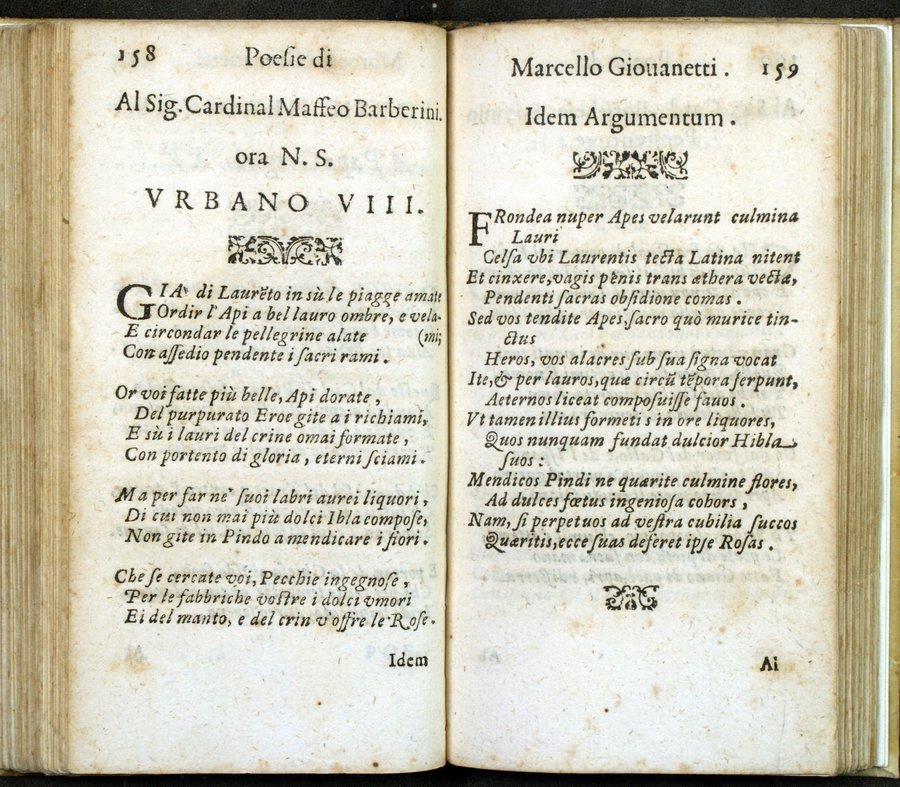 158 Poesie di
Al Sig. Cardinal Maffeo Barberini.
ora N. S.
VRBANO VIII.
GIA' di Laurẽto in sù le piagge amate
Ordir l'Api a bel lauro ombre, e vela-
E circondar le pellegrine alate (mi;
Con assedio pendente i sacri rami.
Or voi fatte più belle, Api dorate,
Del purpurato Eroe gite a i richiami,
E sù i lauri del crine omai formate,
Con portento di gloria, eterni sciami.
Ma per far ne' suoi labri aurei liquori,
Di cui non mai più dolci Ibla compose,
Non gite in Pindo a mendicare i fiori.
Che se cercate voi, Pecchie ingegnose,
Per le fabbriche vostre i dolci vmori
Ei del manto, e del crin v'offre le Rose.
Idem
Marcello Giouanetti. 159
Idem Argumentum.
FRondea nuper Apes velarunt culmina
Lauri
Celsa vbi Laurentis tecta Latina nitent
Et cinxere, vagis penis trans æthera vectæ,
Pendenti sacras obsidione comas.
Sed vos tendite Apes, sacro quò murice tin-
ctus
Heros, vos alacres sub sua signa vocat
Ite, & per lauros, quæ circũ tẽpora serpunt,
Aeternos liceat composuisse fauos.
Vt tamen illius formetis in ore liquores,
Quos nunquam fundat dulcior Hibla
suos:
Mendicos Pindi ne quærite culmine flores,
Ad dulces fœtus ingeniosa cohors,
Nam, si perpetuos ad vestra cubilia succos
Quæritis, ecce suas deferet ipse Rosas.
Ai